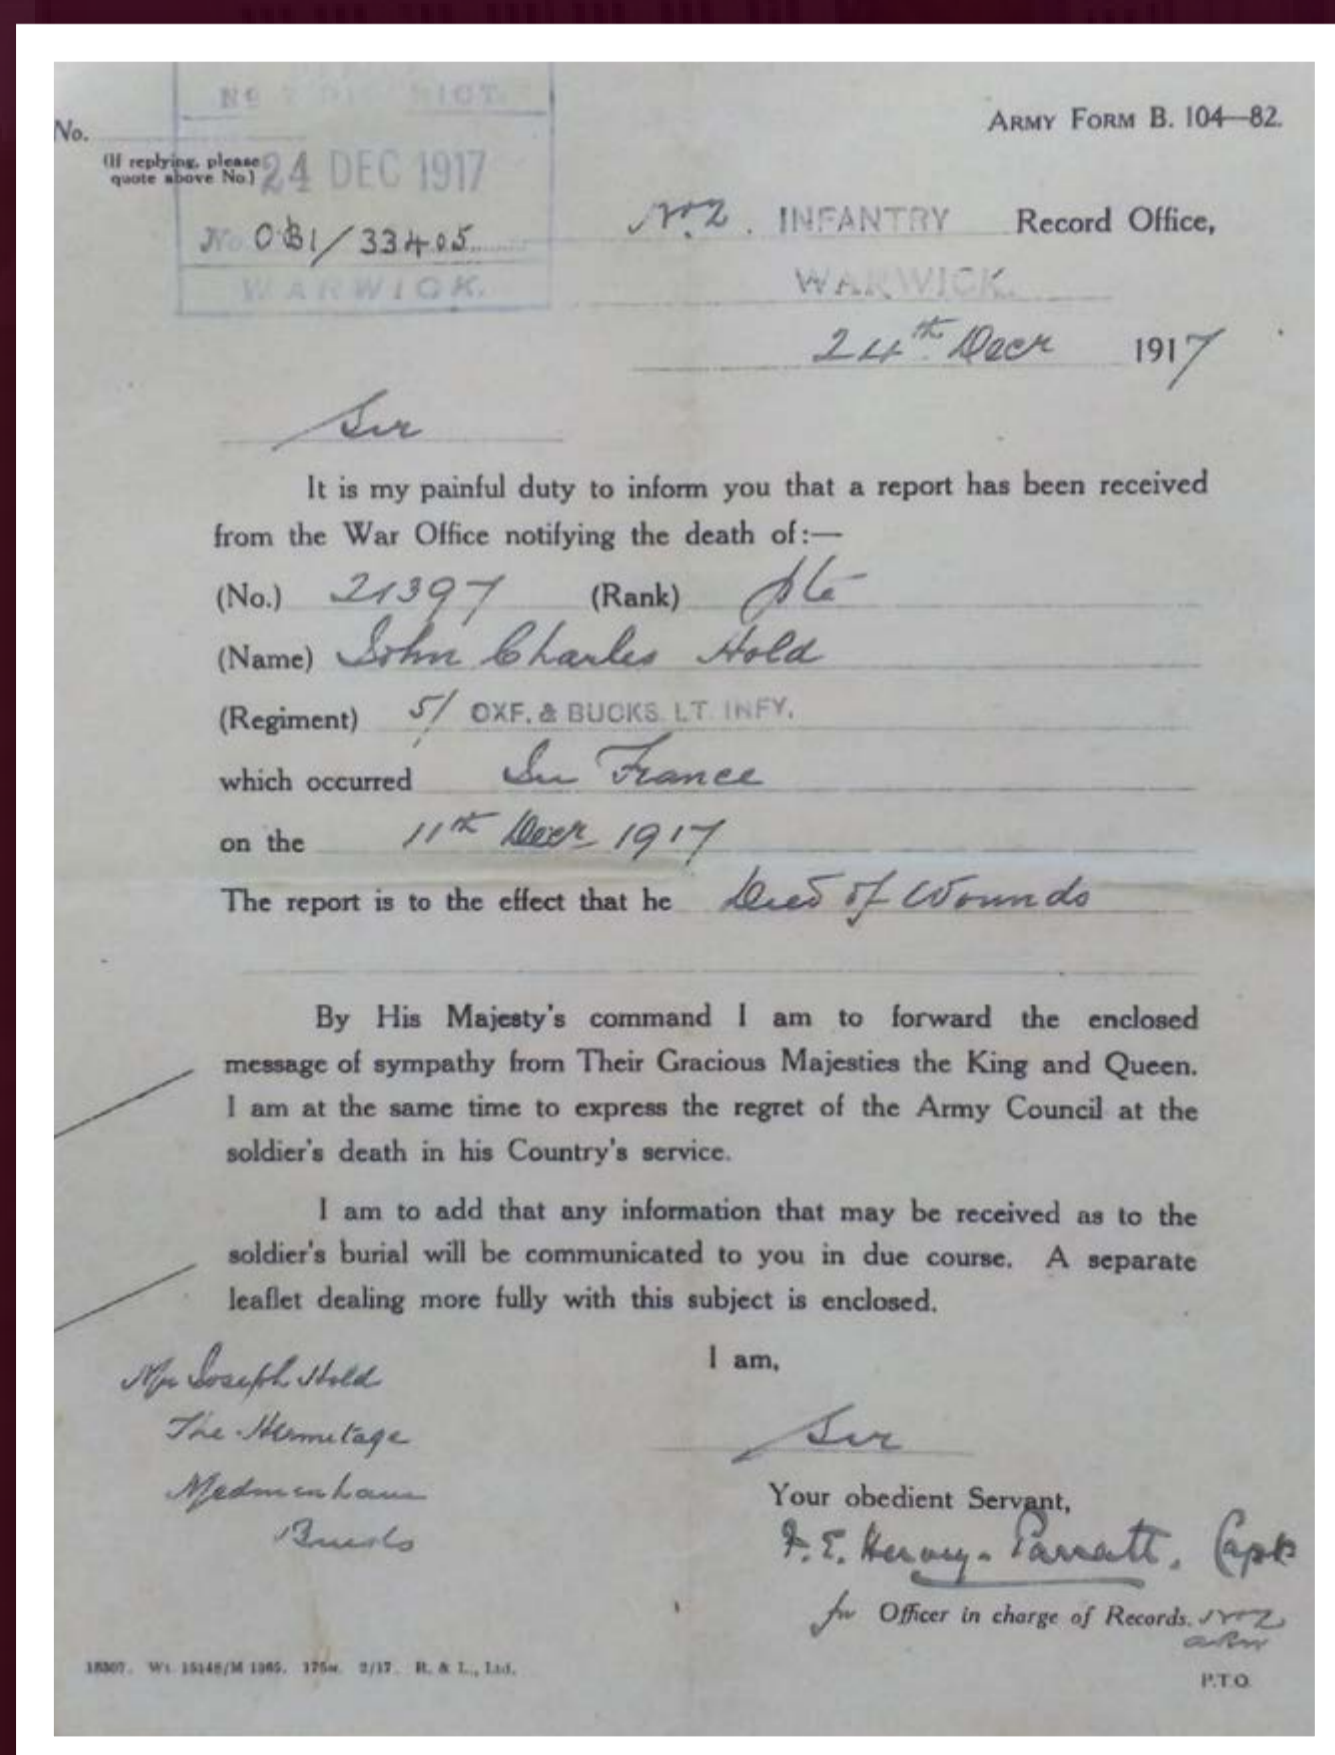 No.
ARMY FORM B. 104—82.
(If replying, please
quote above No.)
24 DEC 1917
No 081/33405
WARWICK.
No. 2. INFANTRY Record Office,
WARWICK.
24th Decr 1917
Sir
It is my painful duty to inform you that a report has been received
from the War Office notifying the death of:—
(No.) 21397 (Rank) Pte
(Name) John Charles Hold
(Regiment) 5/ OXF. & BUCKS. LT. INFY.
which occurred In France
on the 11th Decr 1917
The report is to the effect that he Died of Wounds
By His Majesty's command I am to forward the enclosed
message of sympathy from Their Gracious Majesties the King and Queen.
I am at the same time to express the regret of the Army Council at the
soldier's death in his Country's service.
I am to add that any information that may be received as to the
soldier's burial will be communicated to you in due course. A separate
leaflet dealing more fully with this subject is enclosed.
I am,
Sir
Mr Joseph Hold
The Hermitage
Medmenham
Bucks
Your obedient Servant,
F. E. Hervey-Parratt, Capt
for Officer in charge of Records. No 2
P.T.O.
18307. Wt. 15148/M 1365. 175M. 2/17. R. & L., Ltd.